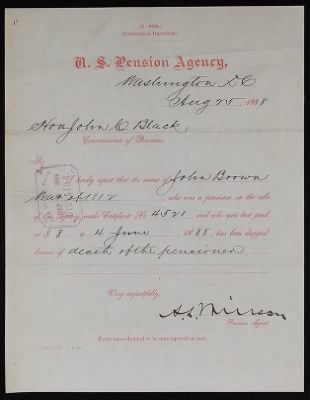 U. S. Pension Agency,
Washington DC
Aug 25, 1888.
Hon John C Black,
Commissioner of Pensions.
Sir:
I hereby report that the name of John Brown
War of 1812, who was a pensioner on the rolls
of this Agency, under Certificate No 4521 and who was last paid
at $ 8, to 4 June 1888, has been dropped
because of death of the pensioner.
Very respectfully,
Pension Agent.
Every name dropped to be thus reported at once.